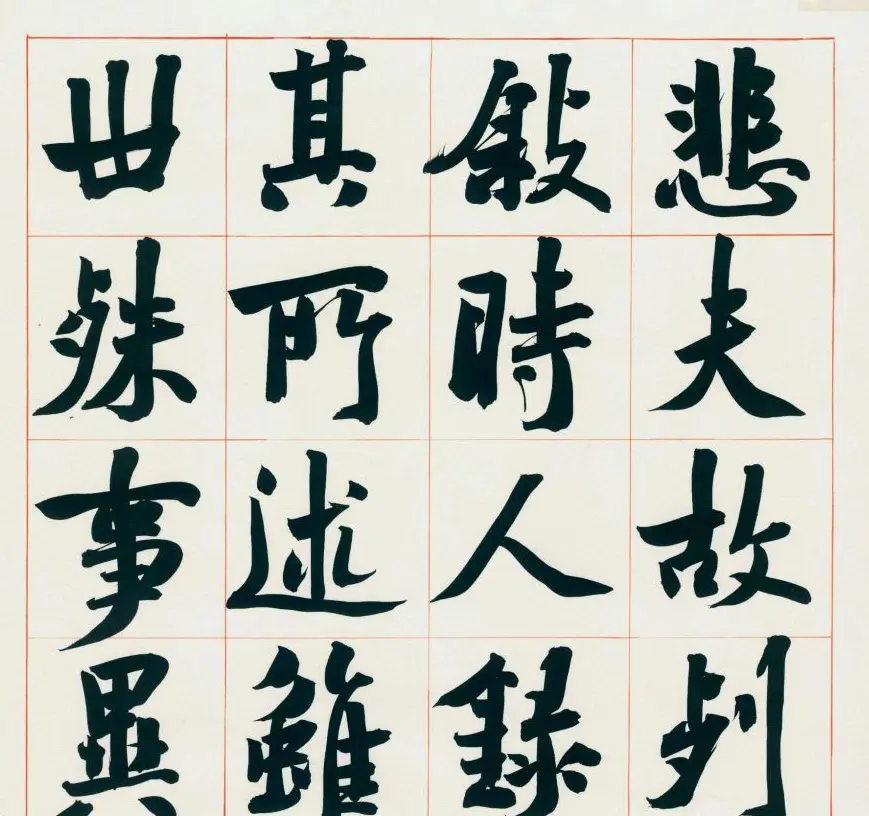 悲夫故列
敍時人錄
其所述雖
世殊事異